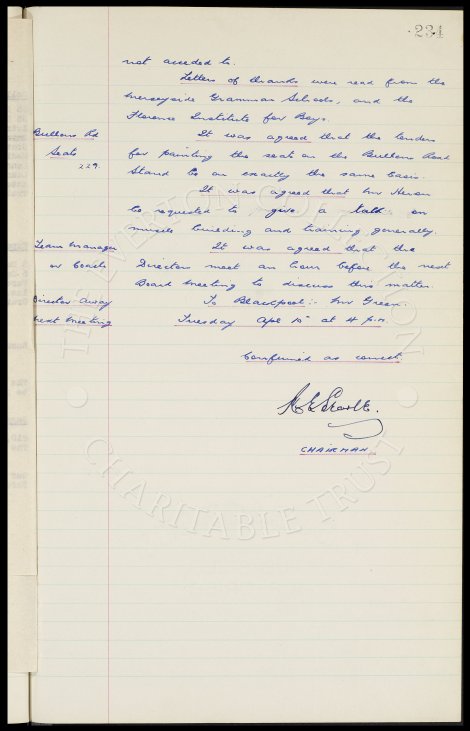 231
not acceded to.
Letters of thanks were read from the
Merseyside Grammar Schools, and the
Florence Institute for Boys.
Bullens Rd It was agreed that the tender
Seats for painting the seats on the Bullens Road
229. Stand be on exactly the same basis.
It was agreed that Mr Heron
be requested to give a talk on
muscle building and training generally.
Team Manager It was agreed that the
or Coach Directors meet an hour before the next
Board Meeting to discuss this matter.
Director away To Blackpool :- Mr Green.
next meeting Tuesday Apl 10th at 4 p.m.
Confirmed as correct.
CHAIRMAN
THE EVERTON COLLECTION
CHARITABLE TRUST